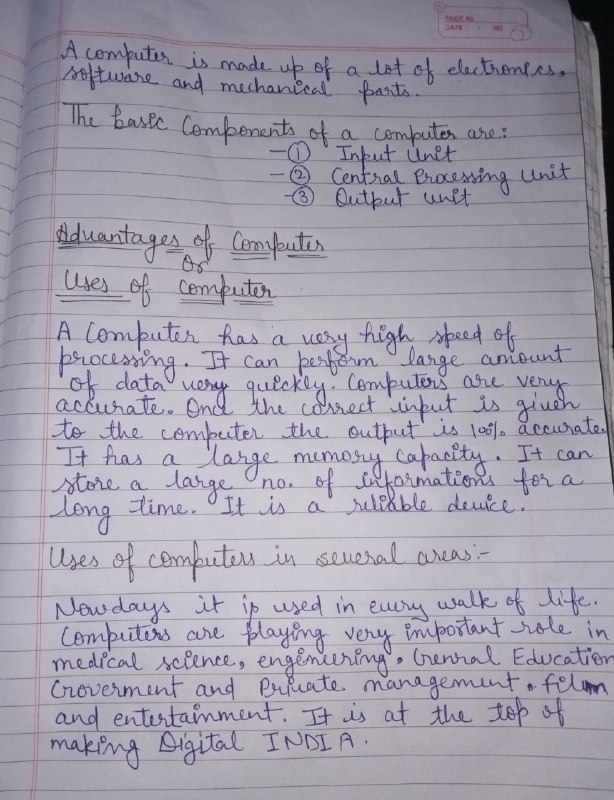 PAGE No
DATE: / /202
A computer is made up of a lot of electronics,
software and mechanical parts.
The basic Components of a computer are:
-① Input Unit
-② Central Processing Unit
-③ Output unit
Advantages of Computer
Or
Uses of computer
A Computer has a very high speed of
processing. It can perform large amount
of data very quickly. Computers are very
accurate. Once the correct input is given
to the computer the output is 100% accurate.
It has a large memory capacity. It can
store a large no. of informations for a
long time. It is a reliable device.
Uses of computers in several areas:-
Nowdays it is used in every walk of life.
Computers are playing very important role in
medical science, engineering, Genral Education
Goverment and Private management, film
and entertainment. It is at the top of
making Digital INDIA.